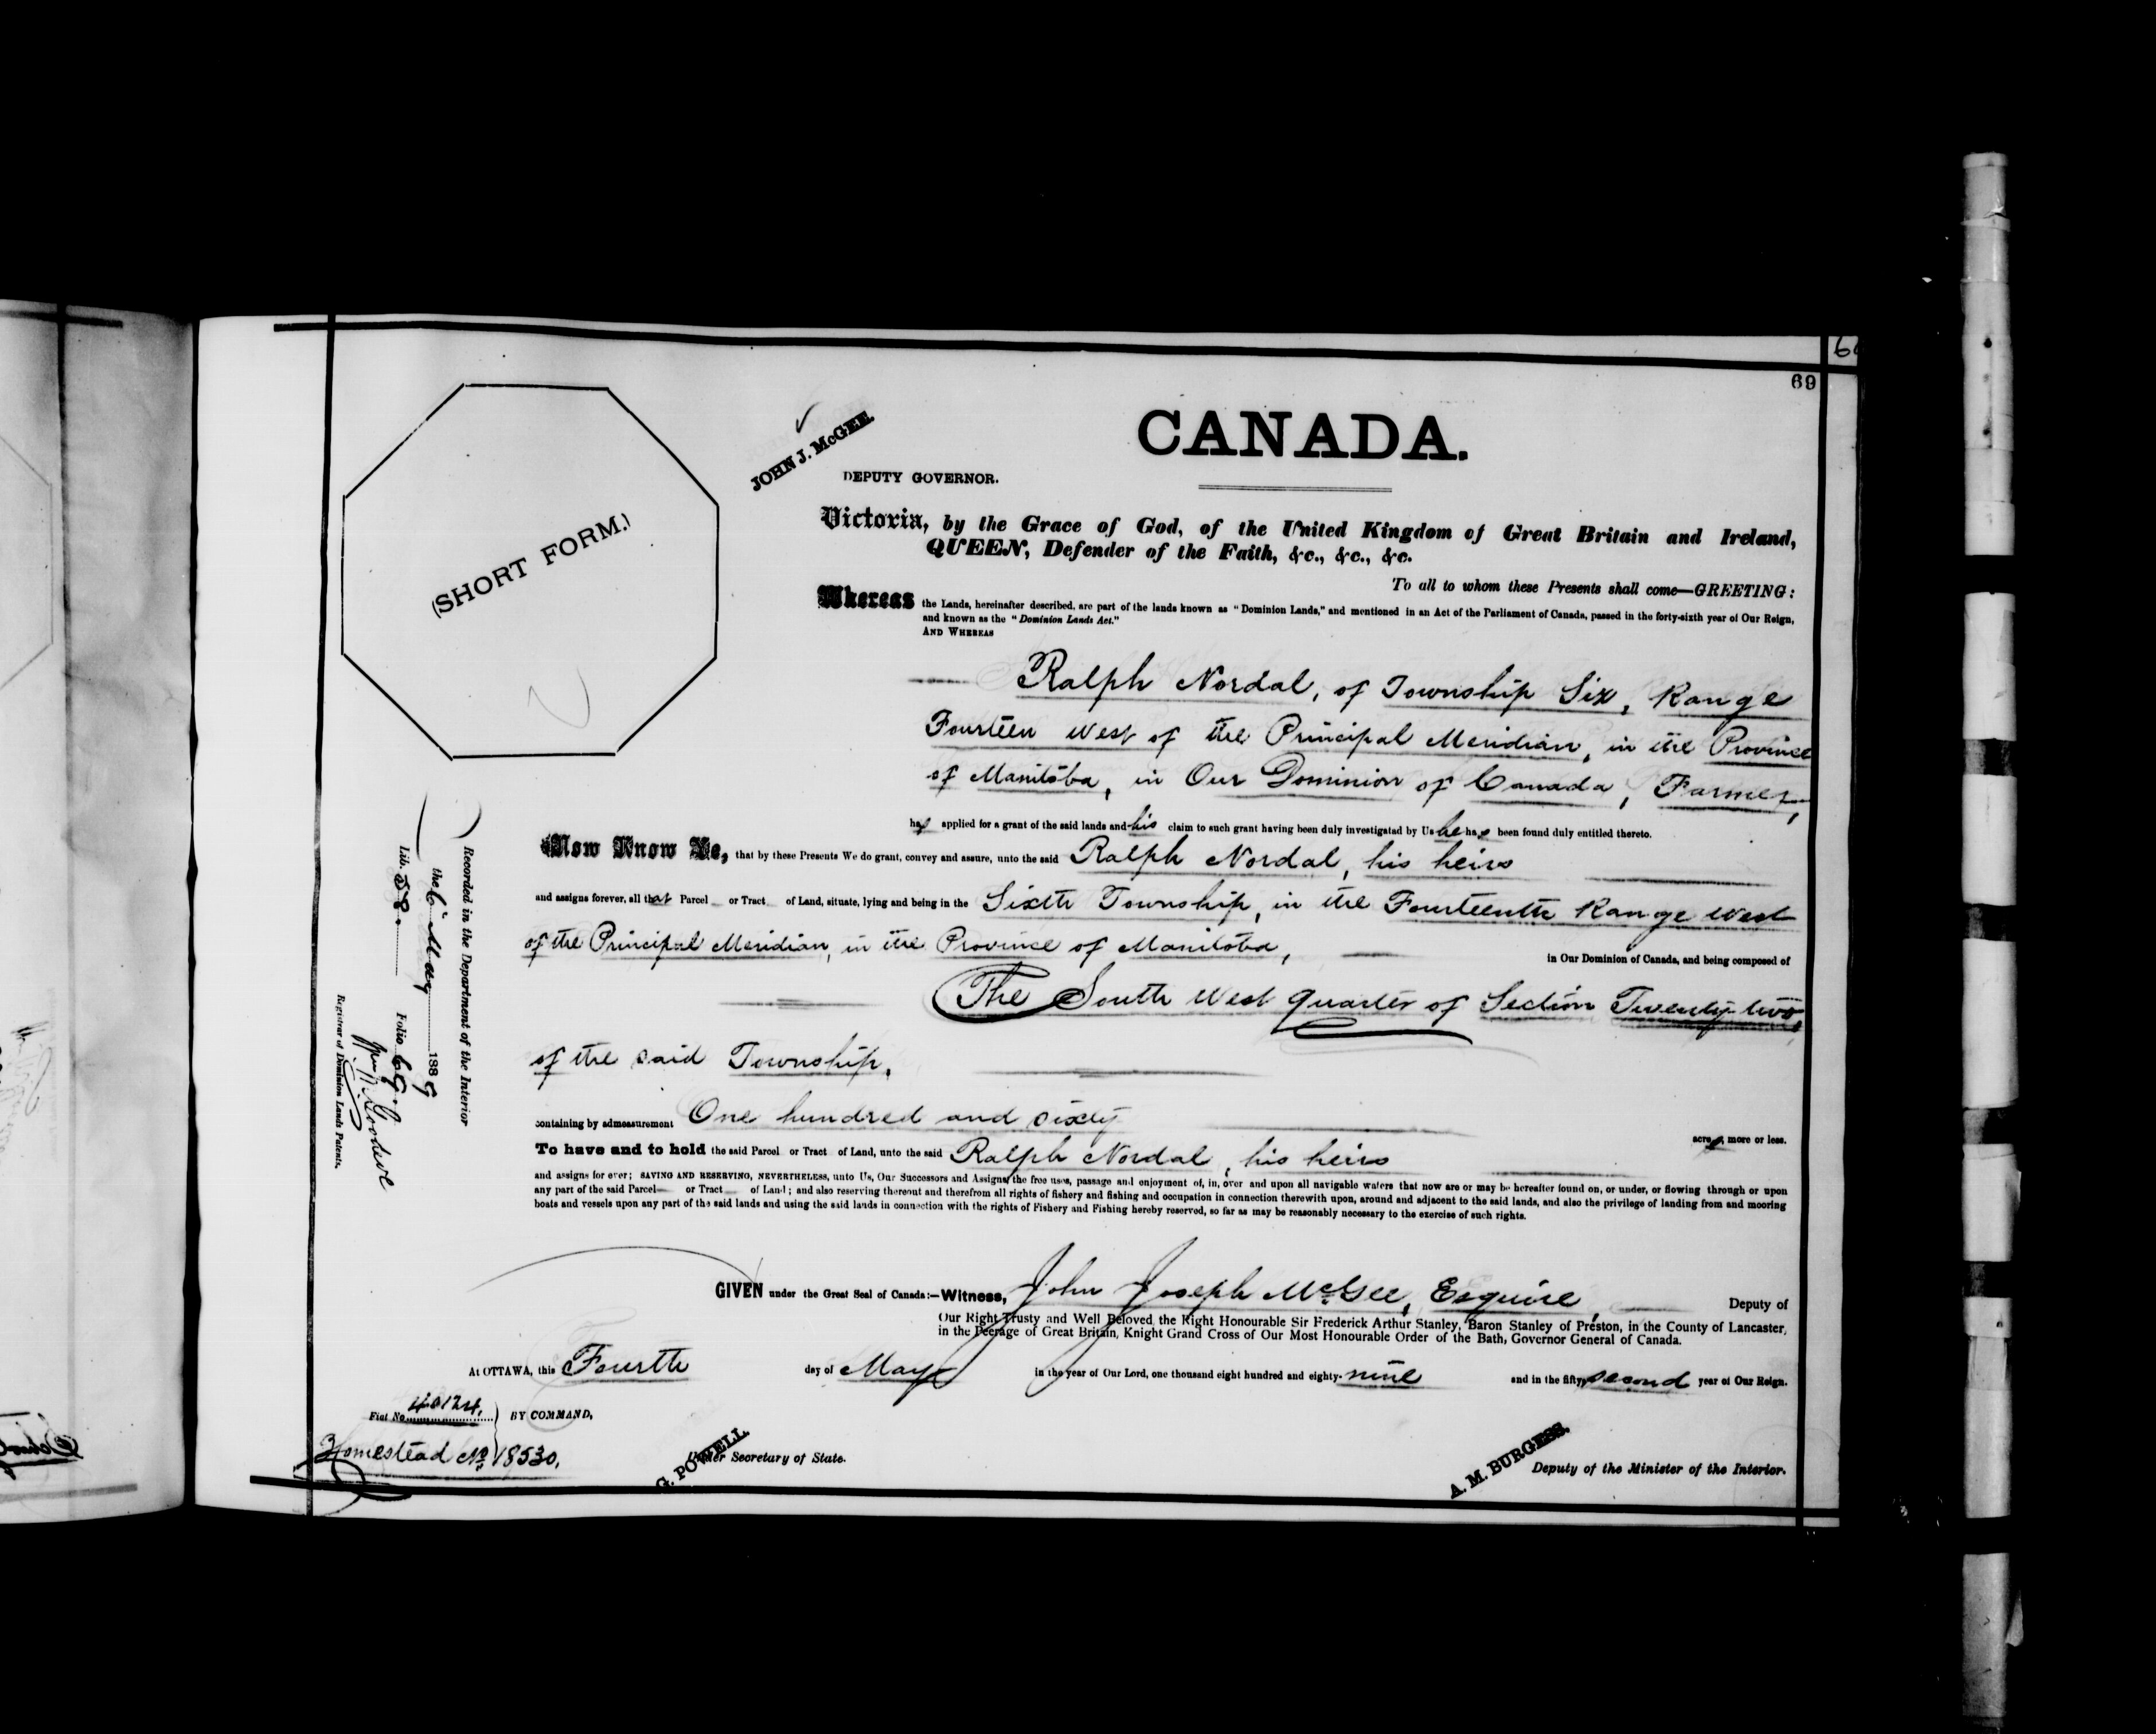 69
CANADA.
JOHN J. McGEE.
DEPUTY GOVERNOR.
(SHORT FORM.)
Victoria, by the Grace of God, of the United Kingdom of Great Britain and Ireland,
QUEEN, Defender of the Faith, &c., &c., &c.
To all to whom these Presents shall come—GREETING:
Whereas the Lands, hereinafter described, are part of the lands known as "Dominion Lands," and mentioned in an Act of the Parliament of Canada, passed in the forty-sixth year of Our Reign,
and known as the "Dominion Lands Act."
AND WHEREAS
Ralph Nordal, of Township Six, Range
Fourteen West of the Principal Meridian, in the Province
of Manitoba, in Our Dominion of Canada, Farmer,
has applied for a grant of the said lands and his claim to such grant having been duly investigated by Us he has been found duly entitled thereto.
Now Know Ye, that by these Presents We do grant, convey and assure, unto the said Ralph Nordal, his heirs
and assigns forever, all that Parcel or Tract of Land, situate, lying and being in the Sixth Township, in the Fourteenth Range West
of the Principal Meridian, in the Province of Manitoba, in Our Dominion of Canada, and being composed of
The South West quarter of Section Twenty-two,
of the said Township.
containing by admeasurement One hundred and sixty acres, more or less.
To have and to hold the said Parcel or Tract of Land, unto the said Ralph Nordal, his heirs
and assigns for ever; SAVING AND RESERVING, NEVERTHELESS, unto Us, Our Successors and Assigns the free uses, passage and enjoyment of, in, over and upon all navigable waters that now are or may be hereafter found on, or under, or flowing through or upon
any part of the said Parcel or Tract of Land; and also reserving thereout and therefrom all rights of fishery and fishing and occupation in connection therewith upon, around and adjacent to the said lands, and also the privilege of landing from and mooring
boats and vessels upon any part of the said lands and using the said lands in connection with the rights of Fishery and Fishing hereby reserved, so far as may be reasonably necessary to the exercise of such rights.
GIVEN under the Great Seal of Canada:—Witness, John Joseph McGee, Esquire, Deputy of
Our Right Trusty and Well Beloved the Right Honourable Sir Frederick Arthur Stanley, Baron Stanley of Preston, in the County of Lancaster,
in the Peerage of Great Britain, Knight Grand Cross of Our Most Honourable Order of the Bath, Governor General of Canada.
At OTTAWA, this Fourth day of May in the year of Our Lord, one thousand eight hundred and eighty-nine and in the fifty second year of Our Reign.
Fiat No. 40124, BY COMMAND,
Homestead No 18530,
G. POWELL
Under Secretary of State.
A. M. BURGESS.
Deputy of the Minister of the Interior.
Recorded in the Department of the Interior
the 6 May 1889
Lib. 58. Folio 69.
Wm. M. Goodeve
Registrar of Dominion Lands Patents.